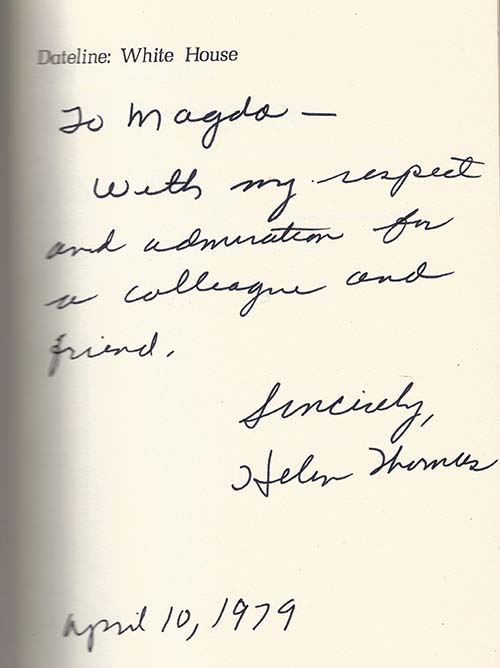 Dateline: White House
To Magda —
With my respect
and admiration for
a colleague and
friend.
Sincerely,
Helen Thomas
April 10, 1979